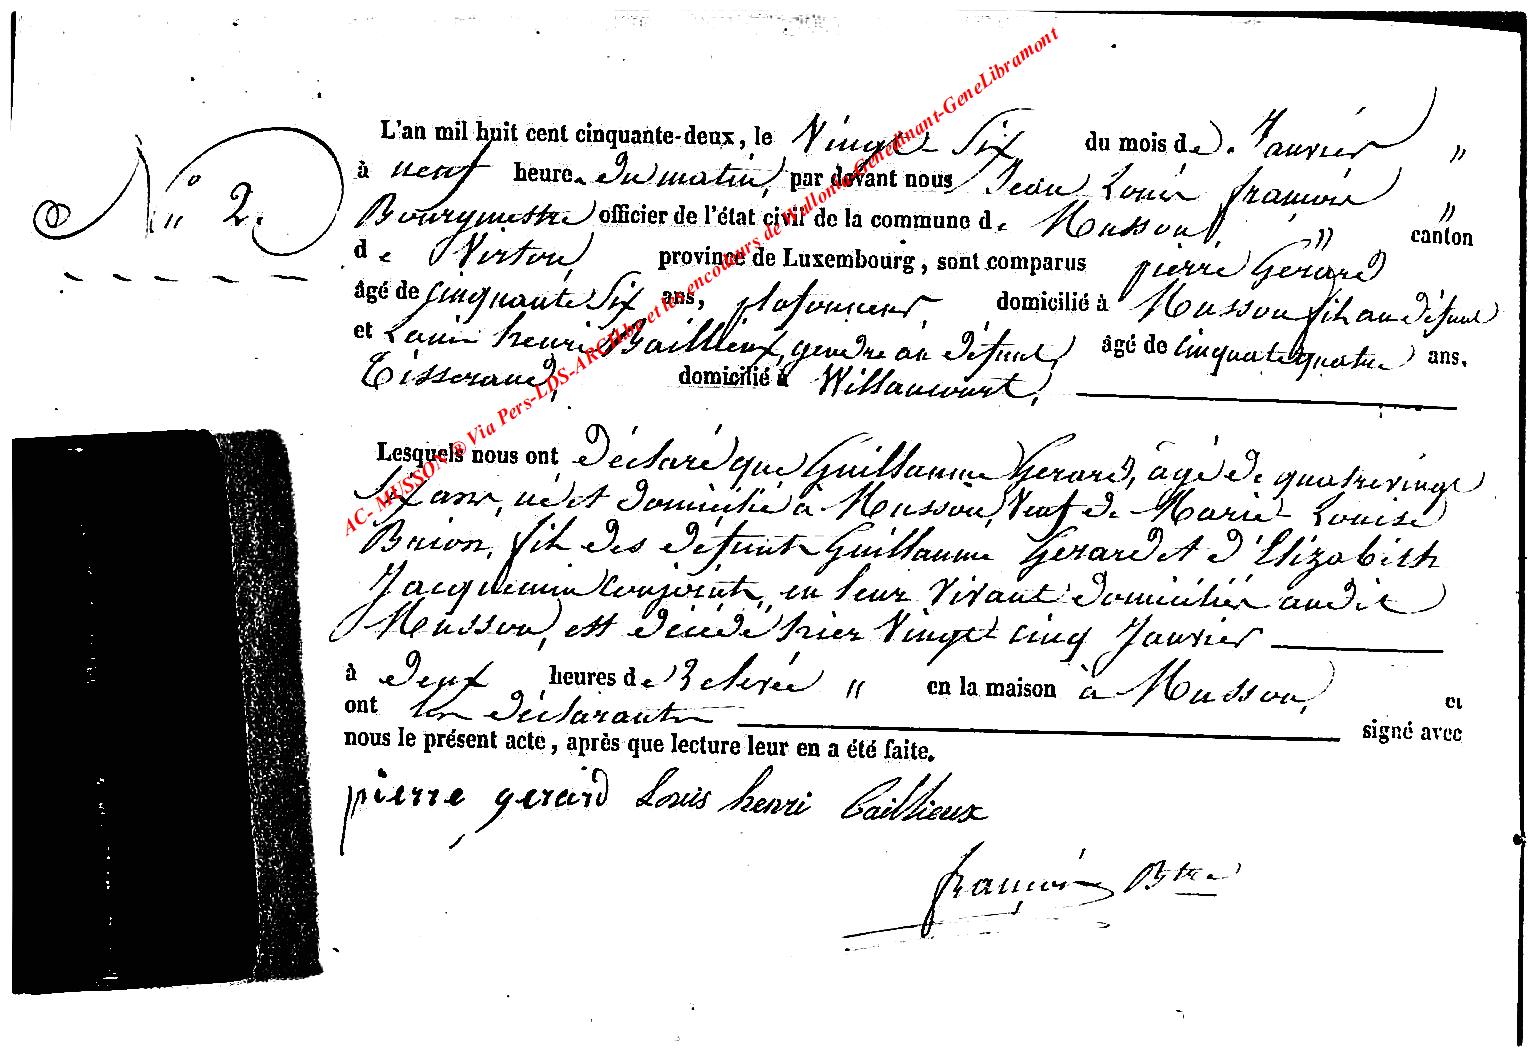 N° 2.
L'an mil huit cent cinquante-deux, le Vingt Six du mois de Janvier "
à neuf heure du matin, par devant nous Jean Louis françois "
Bourgmestre officier de l'état civil de la commune de Musson, " canton
de Virton, province de Luxembourg, sont comparus pierre Gerard
âgé de cinquante Six ans, plafonneur domicilié à Musson fils au défunt
et Louis henri Baillieux, gendre au défunt, âgé de cinquante quatre ans,
Tisserand, domicilié à Willancourt,
Lesquels nous ont déclaré que Guillaume Gerard, âgé de quatre vingt
Six ans, né et domicilié à Musson, Veuf de Marie Louise
Brion, fils des défunts Guillaume Gerard et d'Elizabeth
Jacquemin conjoints, en leur vivant domiciliés audit
Musson, est décédé hier Vingt cinq Janvier
à deux heures de relevée " en la maison à Musson, et
ont les déclarants signé avec
nous le présent acte, après que lecture leur en a été faite.
pierre gerard Louis henri Baillieux
françois Btre
AC- MUSSON ® Via Pers-LDS-ARCH.be et les encodeurs de Wallonia-Genedinant-GeneLibramont